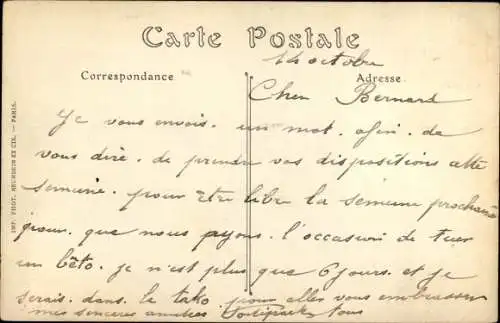 Carte Postale
14 octobre
Correspondance
Adresse
Cher Bernard
Je vous envois. un mot. afin. de
vous dire. de prendre vos dispositions cette
semaine. pour être libre la semaine prochaine
pour. que nous ayons. l'occasion de tuer
un bêto. je n'est plus que 6 jours. et je
serais. dans. le pour aller vous embrasser
mes sincères amitiés tous
IMP. PHOT. NEURDEIN ET CIE. — PARIS.